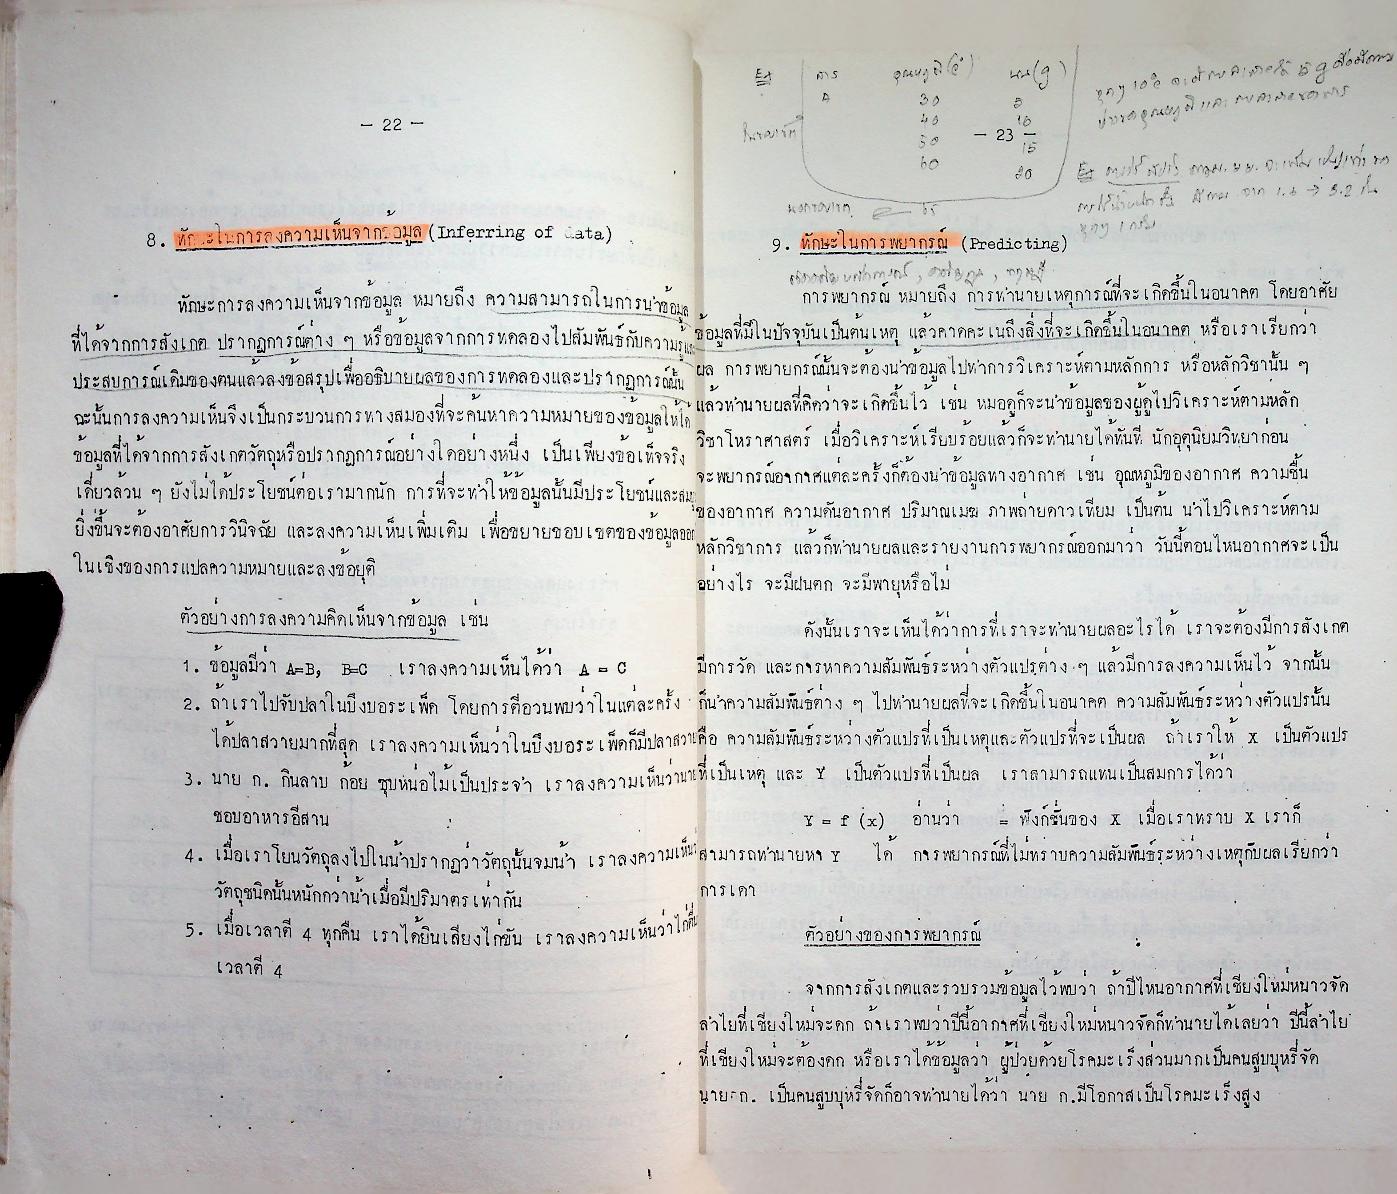 - 22 -
8. ทักษะในการลงความเห็นจากข้อมูล (Inferring of data)
ทักษะการลงความเห็นจากข้อมูล หมายถึง ความสามารถในการนำข้อมูล
ที่ได้จากการสังเกต ปรากฏการณ์ต่าง ๆ หรือข้อมูลจากการทดลองไปสัมพันธ์กับความรู้และ
ประสบการณ์เดิมของตนแล้วลงข้อสรุปเพื่ออธิบายผลของการทดลองและปรากฏการณ์นั้น
ฉะนั้นการลงความเห็นจึงเป็นกระบวนการทางสมองที่จะค้นหาความหมายของข้อมูลให้ได้
ข้อมูลที่ได้จากการสังเกตวัตถุหรือปรากฏการณ์อย่างใดอย่างหนึ่ง เป็นเพียงข้อเท็จจริง
เดี่ยวล้วน ๆ ยังไม่ได้ประโยชน์ต่อเรามากนัก การที่จะทำให้ข้อมูลนั้นมีประโยชน์และ
ยิ่งขึ้นจะต้องอาศัยการวินิจฉัย และลงความเห็นเพิ่มเติม เพื่อขยายขอบเขตของข้อมูลออก
ในเชิงของการแปลความหมายและลงข้อยุติ
ตัวอย่างการลงความคิดเห็นจากข้อมูล เช่น
1. ข้อมูลมีว่า A=B, B=C เราลงความเห็นได้ว่า A = C
2. ถ้าเราไปจับปลาในบึงบอระเพ็ด โดยการตีอวนพบว่าในแต่ละครั้ง
ได้ปลาสวายมากที่สุด เราลงความเห็นว่าในบึงบอระเพ็ดก็มีปลาสวาย
3. นาย ก. กินลาบ ก้อย ซุบหน่อไม้เป็นประจำ เราลงความเห็นว่านาย
ชอบอาหารอีสาน
4. เมื่อเราโยนวัตถุลงไปในน้ำปรากฏว่าวัตถุนั้นจมน้ำ เราลงความเห็นว่า
วัตถุชนิดนั้นหนักกว่าน้ำเมื่อมีปริมาตรเท่ากัน
5. เมื่อเวลาตี 4 ทุกคืน เราได้ยินเสียงไก่ขัน เราลงความเห็นว่าไก่ตื่น
เวลาตี 4
Ex สาร อุณหภูมิ(c°) นน(g)
A 30 5
40 10
- 23 -
50 15
60 20
9. ทักษะในการพยากรณ์ (Predicting)
การพยากรณ์ หมายถึง การทำนายเหตุการณ์ที่จะเกิดขึ้นในอนาคต โดยอาศัย
ข้อมูลที่มีในปัจจุบันเป็นต้นเหตุ แล้วคาดคะเนถึงสิ่งที่จะเกิดขึ้นในอนาคต หรือเราเรียกว่า
ผล การพยายกรณ์นั้นจะต้องนำข้อมูลไปทำการวิเคราะห์ตามหลักการ หรือหลักวิชานั้น ๆ
แล้วทำนายผลที่คิดว่าจะเกิดขึ้นไว้ เช่น หมอดูก็จะนำข้อมูลของผู้ดูไปวิเคราะห์ตามหลัก
วิชาโหราศาสตร์ เมื่อวิเคราะห์เรียบร้อยแล้วก็จะทำนายได้ทันที นักอุตุนิยมวิทยาก่อน
จะพยากรณ์อากาศแต่ละครั้งก็ต้องนำข้อมูลทางอากาศ เช่น อุณหภูมิของอากาศ ความชื้น
ของอากาศ ความดันอากาศ ปริมาณเมฆ ภาพถ่ายดาวเทียม เป็นต้น นำไปวิเคราะห์ตาม
หลักวิชาการ แล้วก็ทำนายผลและรายงานการพยากรณ์ออกมาว่า วันนี้ตอนไหนอากาศจะเป็น
อย่างไร จะมีฝนตก จะมีพายุหรือไม่
ดังนั้นเราจะเห็นได้ว่าการที่เราจะทำนายผลอะไรได้ เราจะต้องมีการสังเกต
มีการวัด และการหาความสัมพันธ์ระหว่างตัวแปรต่าง ๆ แล้วมีการลงความเห็นไว้ จากนั้น
ก็นำความสัมพันธ์ต่าง ๆ ไปทำนายผลที่จะเกิดขึ้นในอนาคต ความสัมพันธ์ระหว่างตัวแปรนั้น
คือ ความสัมพันธ์ระหว่างตัวแปรที่เป็นเหตุและตัวแปรที่จะเป็นผล ถ้าเราให้ X เป็นตัวแปร
ที่เป็นเหตุ และ Y เป็นตัวแปรที่เป็นผล เราสามารถแทนเป็นสมการได้ว่า
Y = f (x) อ่านว่า = ฟังก์ชั่นของ X เมื่อเราทราบ X เราก็
สามารถทำนายหา Y ได้ การพยากรณ์ที่ไม่ทราบความสัมพันธ์ระหว่างเหตุกับผลเรียกว่า
การเดา
ตัวอย่างของการพยากรณ์
จากการสังเกตและรวบรวมข้อมูลไว้พบว่า ถ้าปีไหนอากาศที่เชียงใหม่หนาวจัด
ลำไยที่เชียงใหม่จะดก ถ้าเราพบว่าปีนี้อากาศที่เชียงใหม่หนาวจัดก็ทำนายได้เลยว่า ปีนี้ลำไย
ที่เชียงใหม่จะต้องดก หรือเราได้ข้อมูลว่า ผู้ป่วยด้วยโรคมะเร็งส่วนมากเป็นคนสูบบุหรี่จัด
นาย ก. เป็นคนสูบบุหรี่จัดก็อาจทำนายได้ว่า นาย ก.มีโอกาสเป็นโรคมะเร็งสูง